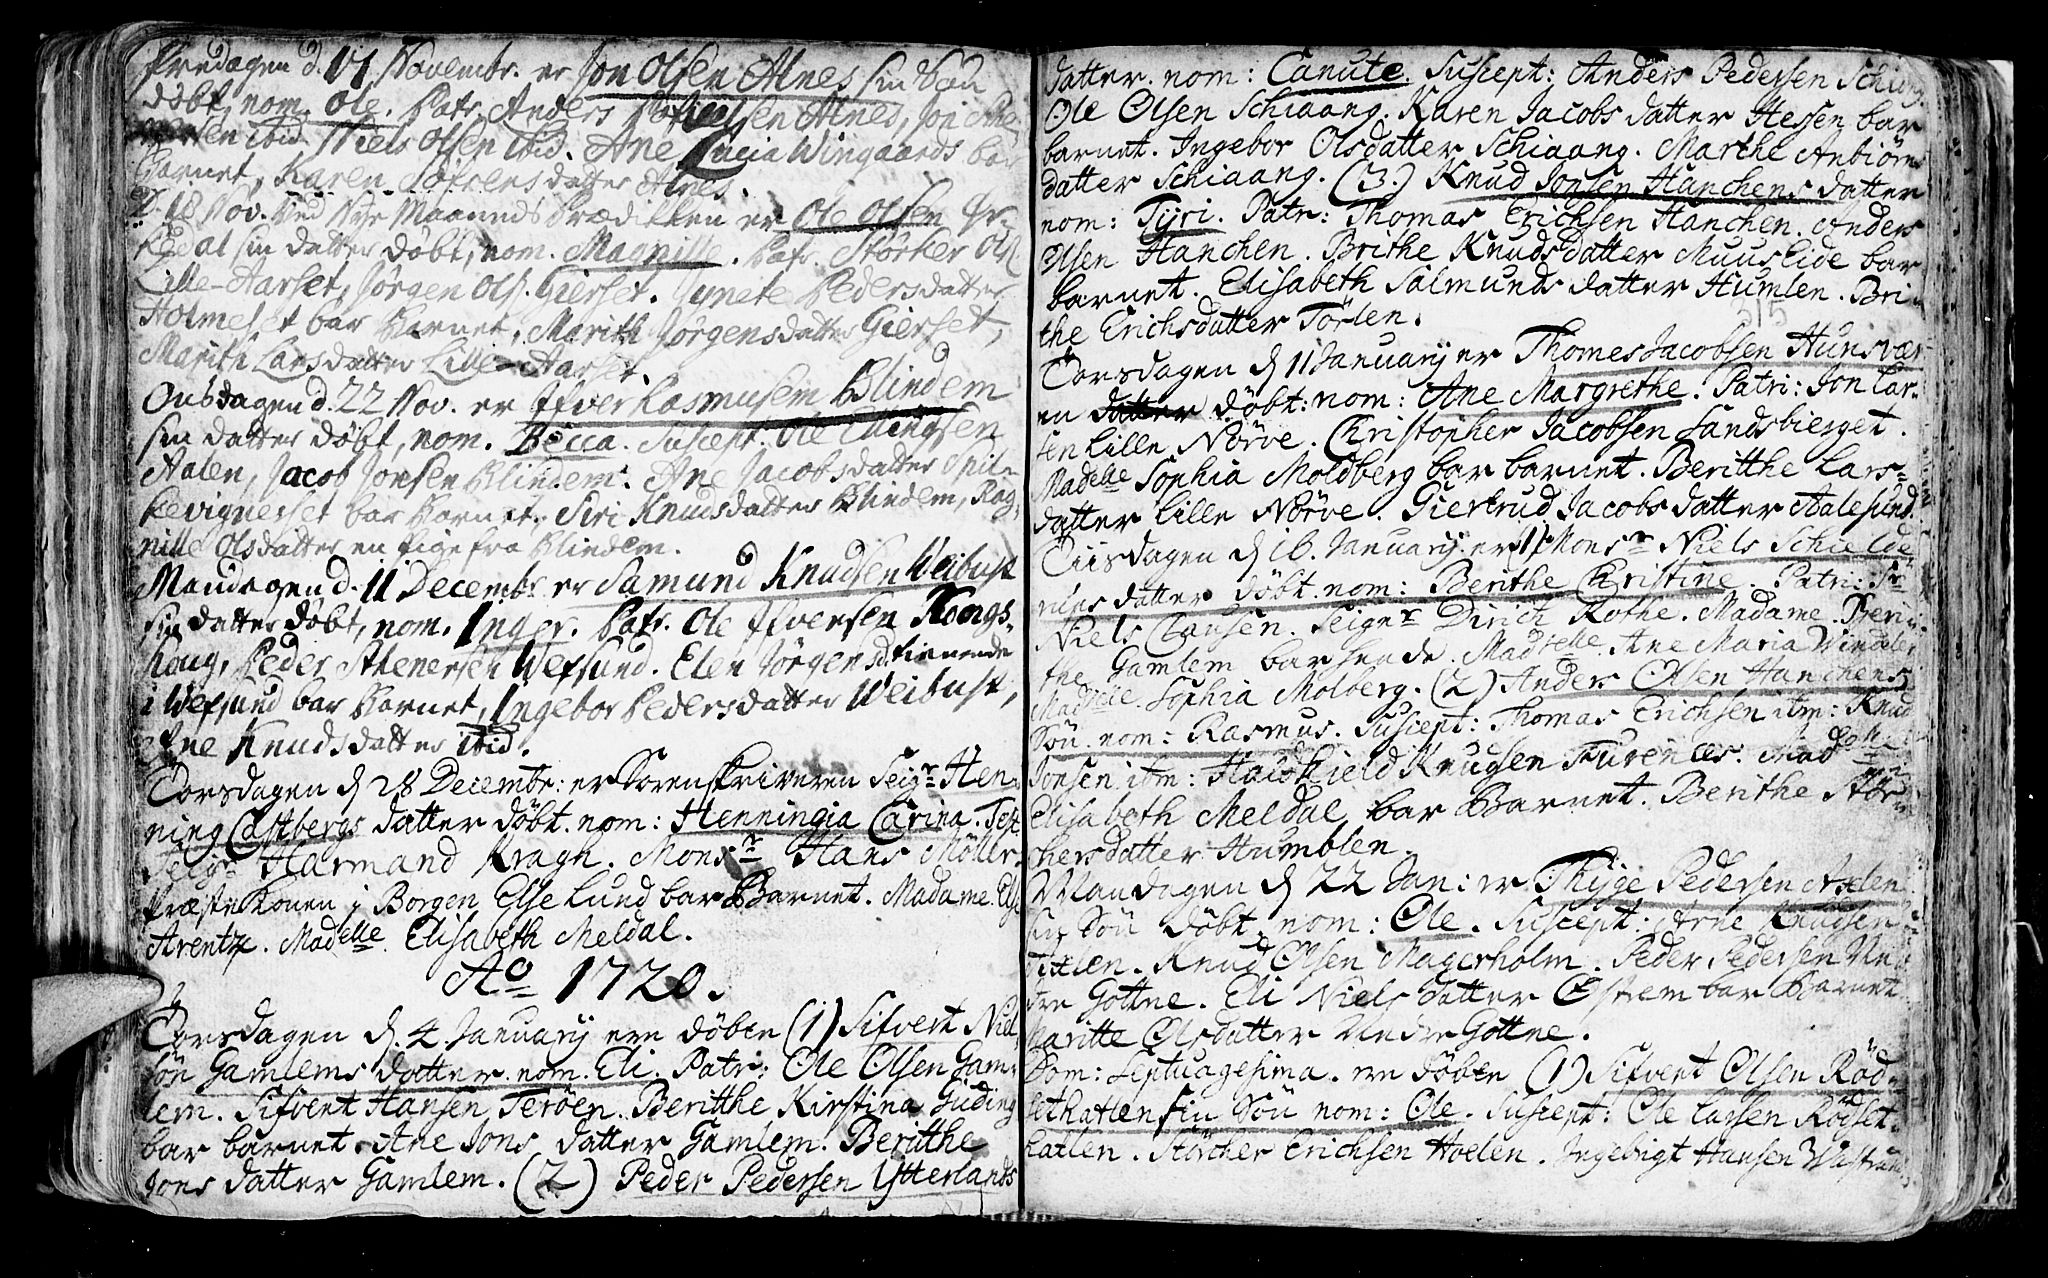 Fredagen d. 17 Novembr. er Jon Olsen Alnes sin Sön
döbt, nom. Ole. Patr. Anders Olsen Alnes, Jon
ibid. Niels Olsen ibid. Ane Lucia Wingaards bar
Barnet, Karen Söfrensdatter Alnes.
D. 18 Nov. Ved Nye Maaneds Prædikken er Ole Olsen
sin datter döbt, nom. Magnille. Patr. Störker Ols.
Lille-Aarset, Jörgen Ols. Gierset. Synete Pedersdatter
Holmeset bar Barnet, Marith Jörgensdatter Gierset,
Marith Larsdatter Lille-Aarset.
Onsdagen d. 22 Nov. er Ifver Rasmusem Blindem
sin datter döbt, nom. Becca. Suscept. Ole Ellingsen
Aalen, Jacob Jonsen Blindem. Ane Jacobsdatter Spil-
kevignerset bar Barnet, Siri Knudsdatter Blindem, Rag-
nille Olsdatter en Pige fra Blindem.
Mandagen d. 11 Decembr. er Samund Knudsen Weibust
sin datter döbt, nom. Inger. Patr. Ole Ifversen Kongs-
houg, Peder Sthenersen Wefsund. Elen Jörgensd. tienende
i Wefsund bar Barnet, Ingebor Pedersdatter Weibust,
Ane Knudsdatter ibid.
Torsdagen d 28 Decembr: er Sorenskriveren Seigr. Hen-
ning Castbergs datter döbt. nom: Henningia Carina. Test.
Seigr Harmand Kragh. Monsr Hans Möller.
Præstekonen i Borgen Else Lund bar Barnet. Madame Els.
Arentz. Madelle. Elisabeth Meldal.
Ao 1720.
Torsdagen d. 4 January ere döbte (1) Sifvert Niel-
sön Gamlems datter nom. Eli. Patr: Ole Olsen Gam-
lem. Sifvert Hansen Teröen. Beritthe Kirstina Giding
bar barnet. Ane Jons datter Gamlem. Beritthe
Jons datter Gamlem. (2) Peder Pedersen Ytterlands
datter. nom: Canute. Suscept: Anders Pedersen Schiang.
Ole Olsen Schiaang. Karen Jacobs datter Hessen bar
barnet. Ingebor Olsdatter Schiaang. Marthe Anbiörns
datter Schiaang. (3.) Knud Jonsen Hanchens datter
nom: Tyri. Patr: Thomas Erichsen Hanchen. Anders
Olsen Hanchen. Brithe Knudsdatter Muuslide bar
barnet. Elisabeth Salmunds datter Humlen. Bri-
the Erichsdatter Törlen.
Torsdagen d 11 January er Thomes Jacobsen Hunsvær
en datter döbt: nom: Ane Margrethe. Patri: Jon Lar-
sen Lille Nörve. Christopher Jacobsen Sandsbierget.
Madelle Sophia Moldberg bar barnet. Beritthe Lars-
datter Lille Nörve. Giertrud Jacobs datter Aalesund.
Tiisdagen d 16. January. er (1) Monsr Niels Schielde-
rups datter döbt. nom: Berithe Christine. Patri: Sr
Niels Clausen. Seignr Dirich Rothe. Madame. Beri-
the Gamlem bar hende. Madselle. Ane Maria Windeler
Madelle. Sophia Molberg. (2) Anders Olsen Hanchens
Sön nom: Rasmus. Suscept: Thomas Erichsen itm: Knud
Jonsen itm: Knudsen Furenæs. Mad
Elisabeth Meldal bar Barnet. Berithe Stör-
chersdatter Humblen.
Mandagen d 22 Jan: er Thyge Pedersen Axlens
sin Sön döbt. nom: Ole. Suscept: Arne Knudsen
Knud Olsen Magerholm. Peder Pedersen Ne-
dre Gottne. Eli Niels datter Estrem bar Barnet.
Maritte Olsdatter Nedre Gottne.
Dom: Septuagesima. ere döbte (1) Sifvert Olsen Röd-
sethatlen sin Sön nom: Ole. Suscept: Ole Larsen Rödset-
hatlen. Störcher Erichsen Hoelen. Ingebrigt Hansen